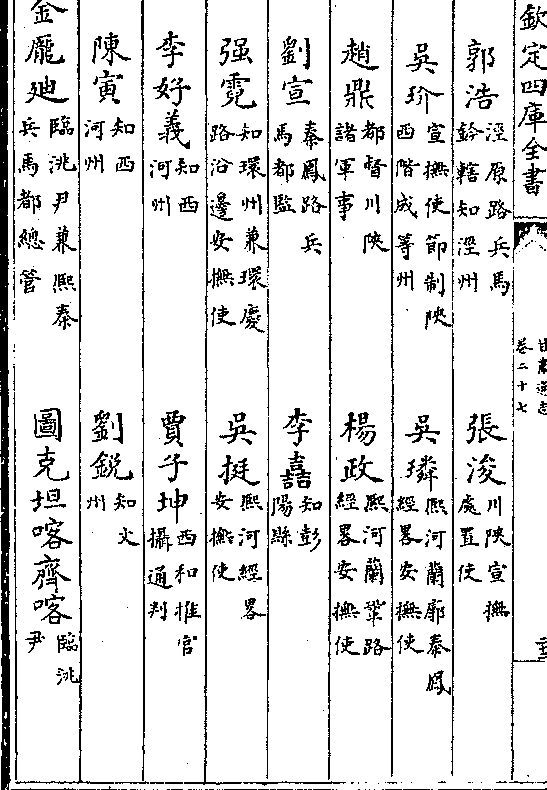 欽定四庫全書
甘肅通志
卷二十七
郭浩 涇原路兵馬鈐轄知涇州 張浚 川陝宣撫處置使
吳玠 宣撫使節制陝西階成等州 吳璘 熙河蘭廓秦鳳經畧安撫使
趙鼎 都督川陝諸軍事 楊政 熙河蘭鞏路經畧安撫使
劉宣 秦鳳路兵馬都監 李嚞 知彭陽縣
强霓 知環州兼環慶路沿邊安撫使 吳挺 熙河經畧安撫使
李好義 知西河州 賈子坤 西和推官攝通判
陳寅 知西河州 劉銳 知文州
金龎廸 臨洮尹兼熙秦兵馬都總管 圖克坦喀齊喀 臨洮尹